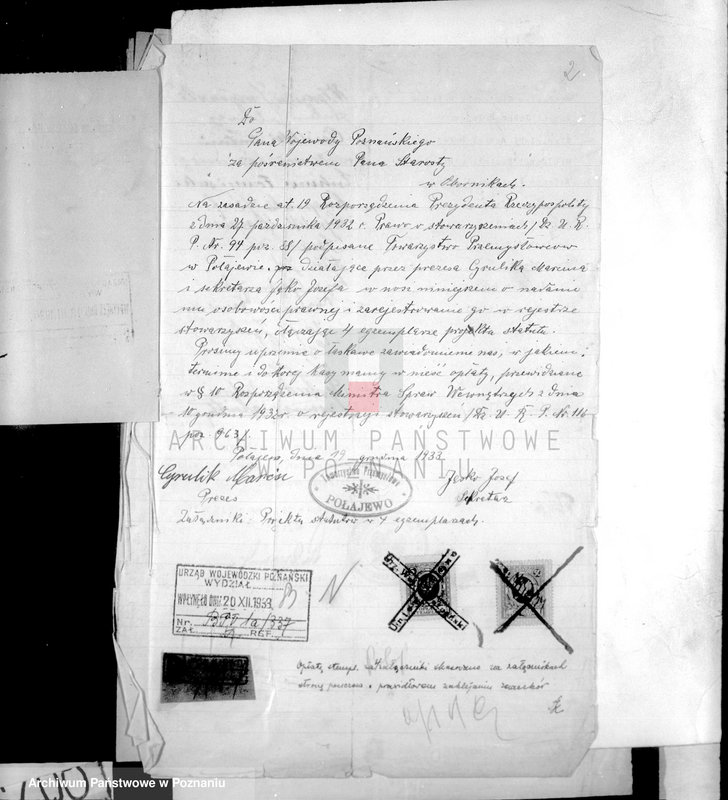 2
Do
Pana Wojewody Poznańskiego
za pośrednictwem Pana Starosty
w Obornikach.
Na zasadzie at. 19 Rozporządzenia Prezydenta Rzeczypospolity
z dnia 27 października 1932 r. Prawo o stowarzyszeniach / Dz. U. R.
P. Nr. 94 poz. 88/ podpisane Towarzystwo Przemysłowców
w Połajewie, działające przez prezesa Grulika Marcina
i sekretarza Jęśko Józefa w nosi niniejszem o nadanie
mu osobowości prawnej i zarejestrowanie go w rejestrze
stowarzyszeń, dłączając 4 egzemplarze projekta statutu.
Prosimy uprzejmie o łaskawe zawiadomienie nas, w jakiem
terminie i do kórej kasy mamy w nieść opłaty, przewidziane
w § 10 Rozporządzenia Ministra Spraw Wewnętrznych z dnia
10 grudnia 1932 r. o rejestracji stowarzyszeń / Dz. U. R. P. Nr. 116
poz. 963/.
ARCHIWUM PAŃSTWOWE
W POZNANIU
Połajewo, dnia 19 grudnia 1933
Grulik Marcin
Jęśko Józef
Prezes
Sekretarz
Towarzystwo Przemysłowców
POŁAJEWO
Załączniki: Projekty statutów w 4 egzemplarzach.
URZĄD WOJEWÓDZKI POZNAŃSKI
WYDZIAŁ
WPŁYNĘŁO DNIA 20 XII. 1933
Nr.
ZAŁ. REF.
Opłatę stempl. za załączniki skasowano na załącznikach
Archiwum Państwowe w Poznaniu